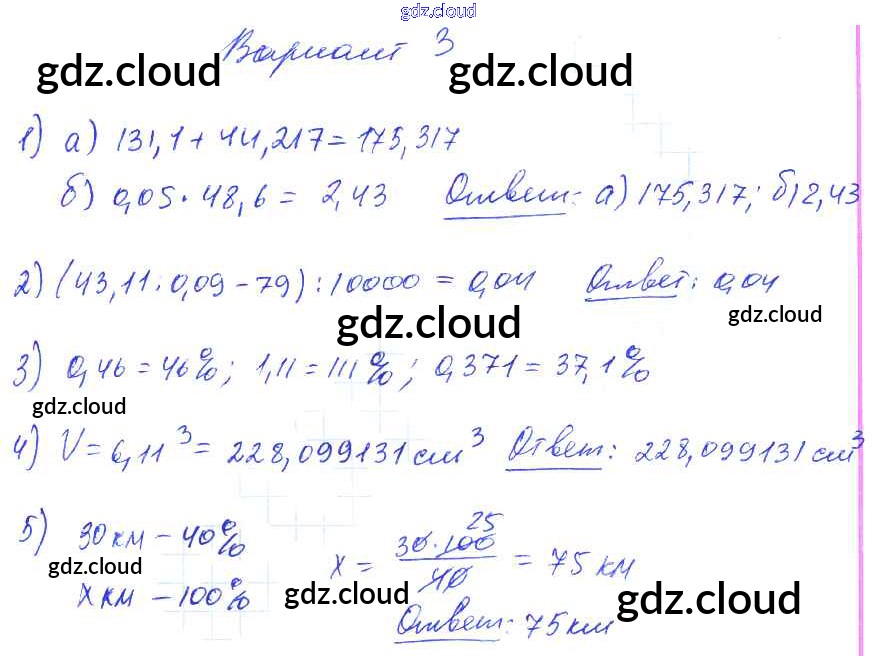 gdz.cloud
Вариант 3
gdz.cloud gdz.cloud
1) а) 131,1 + 44,217 = 175,317
б) 0,05 · 48,6 = 2,43 Ответ: а) 175,317; б) 2,43
2) (43,11 : 0,09 - 79) : 10000 = 0,04 Ответ: 0,04
gdz.cloud gdz.cloud
3) 0,46 = 46%; 1,11 = 111%; 0,371 = 37,1%
gdz.cloud
4) V = 6,11³ = 228,099131 см³ Ответ: 228,099131 см³
5) 30 км - 40%
x км - 100%
x = 30·100/40 = 75 км
25
gdz.cloud gdz.cloud gdz.cloud
Ответ: 75 км